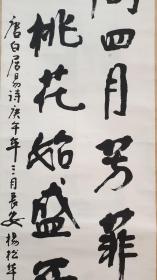 间四月芳菲
桃花始盛
唐白居易诗庚午年三月長安楊松年